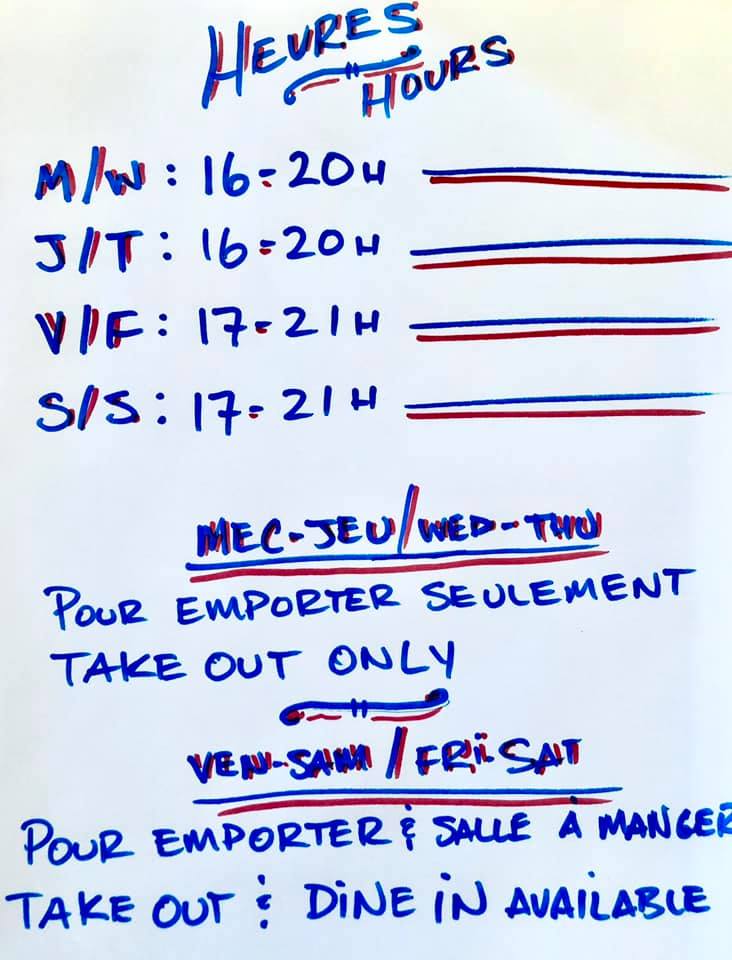 HEURES
HOURS
M/W: 16-20H
J/T: 16-20H
V/F: 17-21H
S/S: 17-21H
MEC-JEU/WED-THU
POUR EMPORTER SEULEMENT
TAKE OUT ONLY
VEN-SAM/FRI-SAT
POUR EMPORTER & SALLE À MANGER
TAKE OUT & DINE IN AVAILABLE